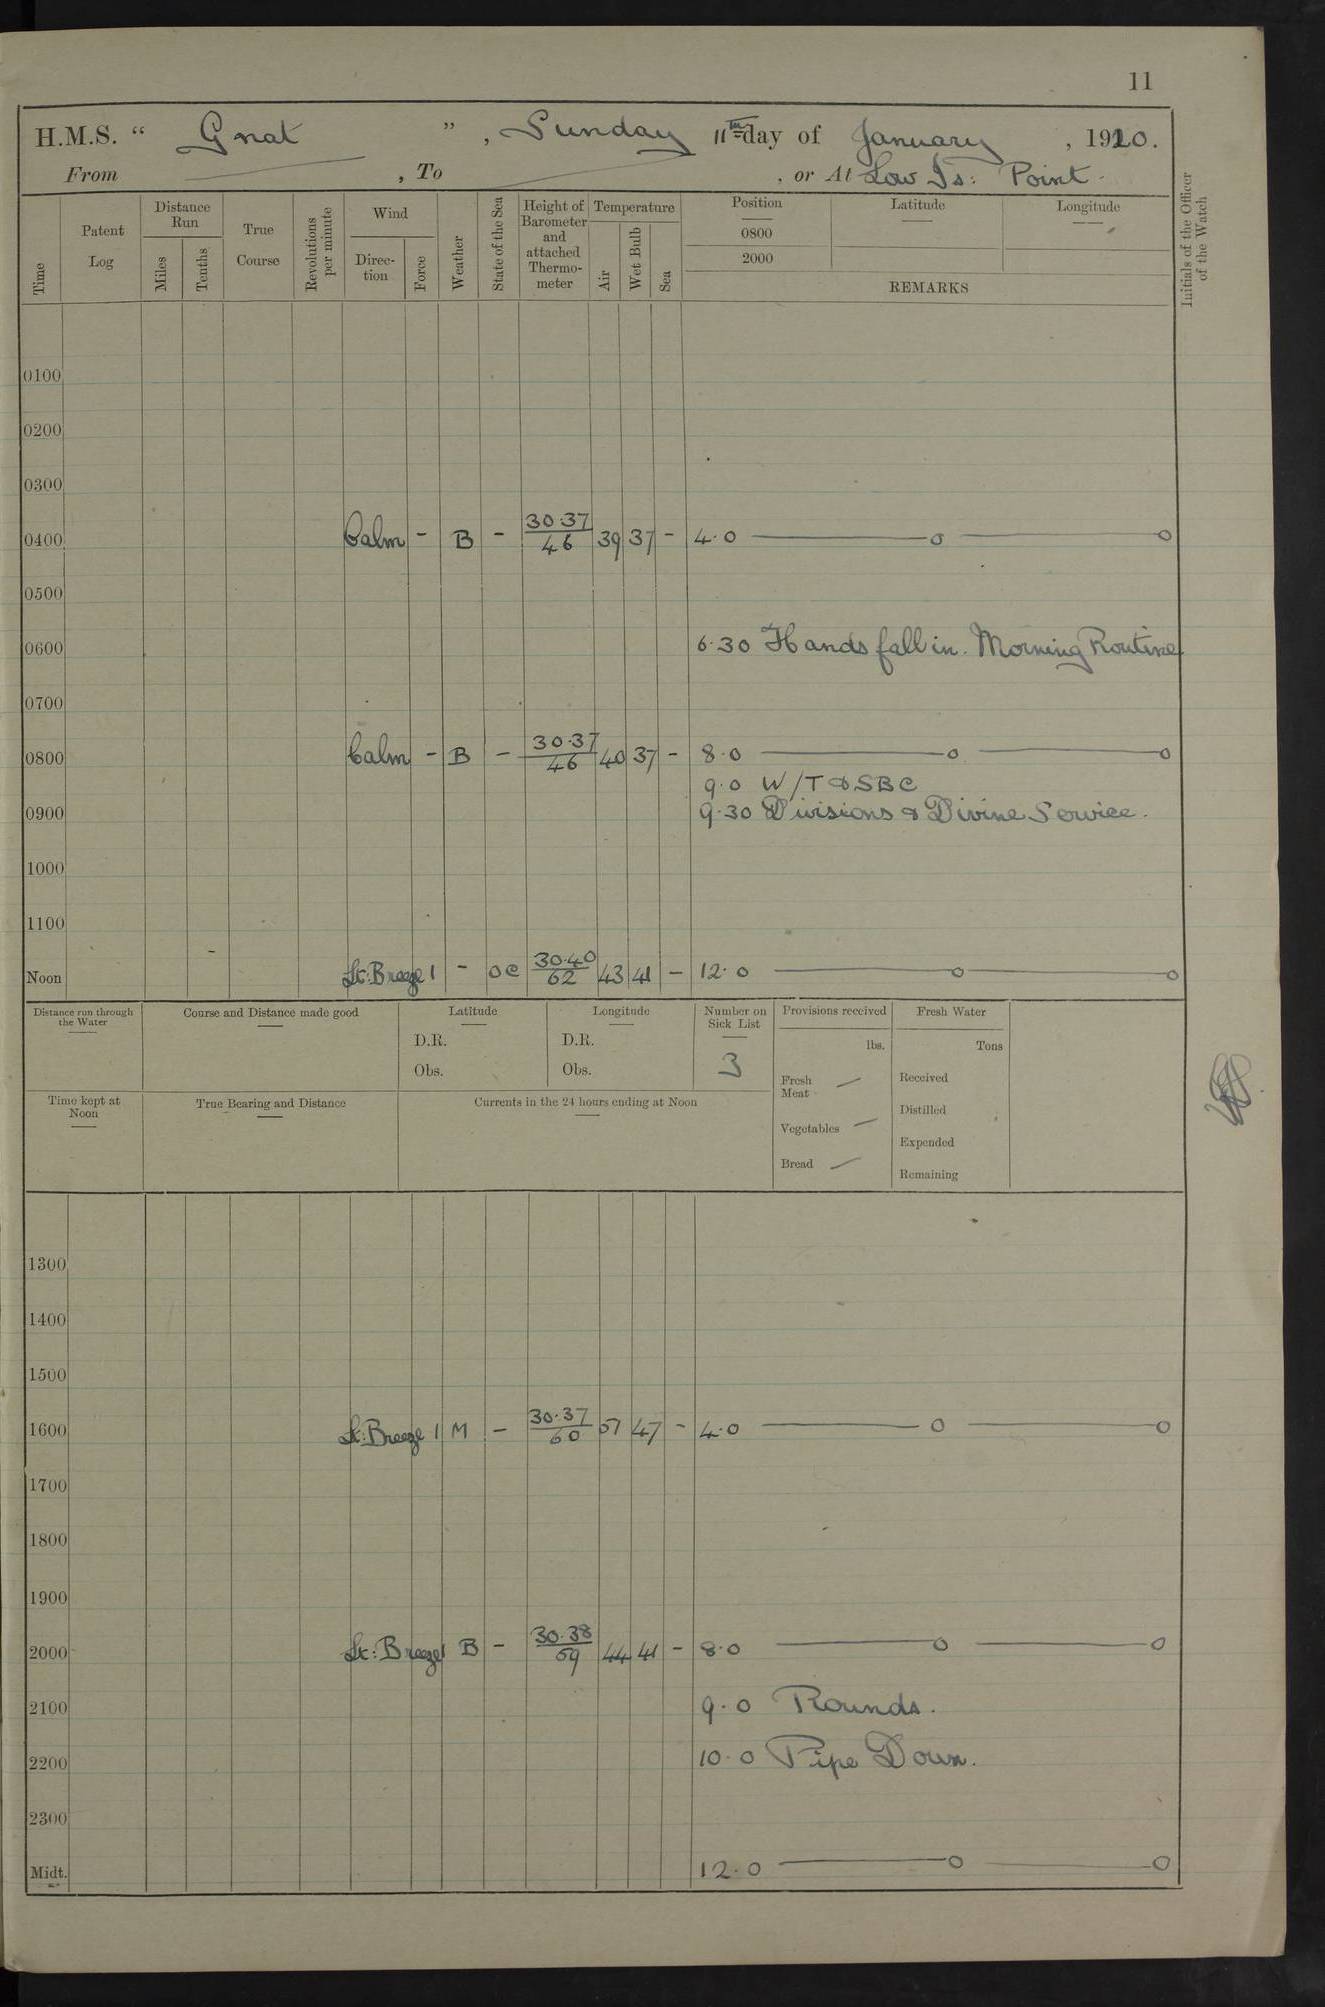 11
H.M.S. “ Gnat ” , Sunday 11th day of January , 1920.
From , To , or At Low Is: Point.
Time
Patent Log
Distance Run
Miles
Tenths
True Course
Revolutions per minute
Wind
Direc-tion
Force
Weather
State of the Sea
Height of Barometer and attached Thermo-meter
Temperature
Air
Wet Bulb
Sea
Position
0800
2000
Latitude
Longitude
REMARKS
Initials of the Officer of the Watch
0100
0200
0300
0400 Calm - B - 30.37/46 39 37 - 4.0 ——o——o
0500
0600 6.30 Hands fall in. Morning Routine
0700
0800 Calm - B - 30.37/46 40 37 - 8.0 ——o——o
9.0 W/T & SBC
0900 9.30 Divisions & Divine Service.
1000
1100
Noon Lt: Breeze 1 - oc 30.40/62 43 41 - 12.0 ——o——o
Distance run through the Water
Course and Distance made good
Latitude
D.R.
Obs.
Longitude
D.R.
Obs.
Number on Sick List
3
Provisions received
lbs.
Fresh Meat —
Vegetables —
Bread —
Fresh Water
Tons
Received
Distilled
Expended
Remaining
Time kept at Noon
True Bearing and Distance
Currents in the 24 hours ending at Noon
1300
1400
1500
1600 Lt: Breeze 1 M - 30.37/60 51 47 - 4.0 ——o——o
1700
1800
1900
2000 Lt: Breeze 1 B - 30.38/59 44 41 - 8.0 ——o——o
2100 9.0 Rounds.
2200 10.0 Pipe Down.
2300
Midt. 12.0 ——o——o